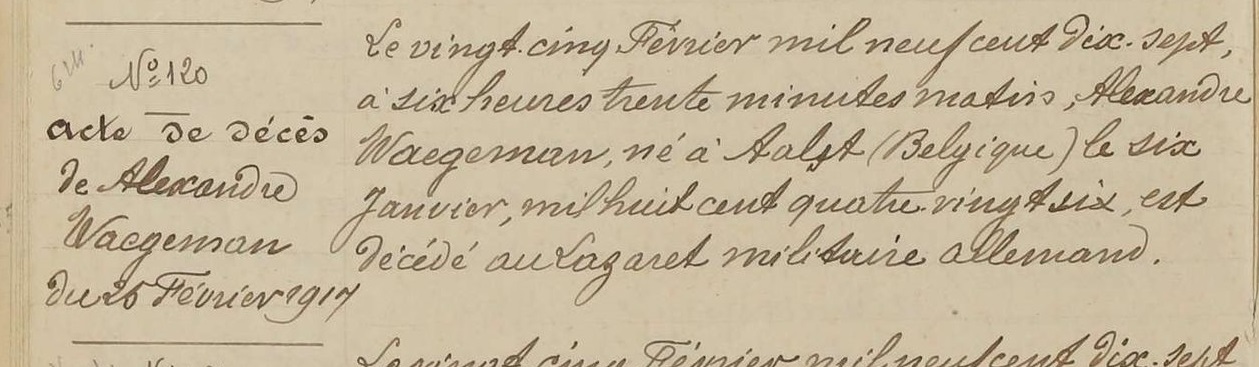 Nº 120
acte de décès
de Alexandre
Waegeman
du 25 Février 1917
Le vingt-cinq Février mil neuf cent dix-sept,
à six heures trente minutes matin, Alexandre
Waegeman, né à Aalst (Belgique) le six
Janvier, mil huit cent quatre-vingt six, est
décédé au Lazaret militaire allemand.
Le vingt cinq Février mil neuf cent dix-sept